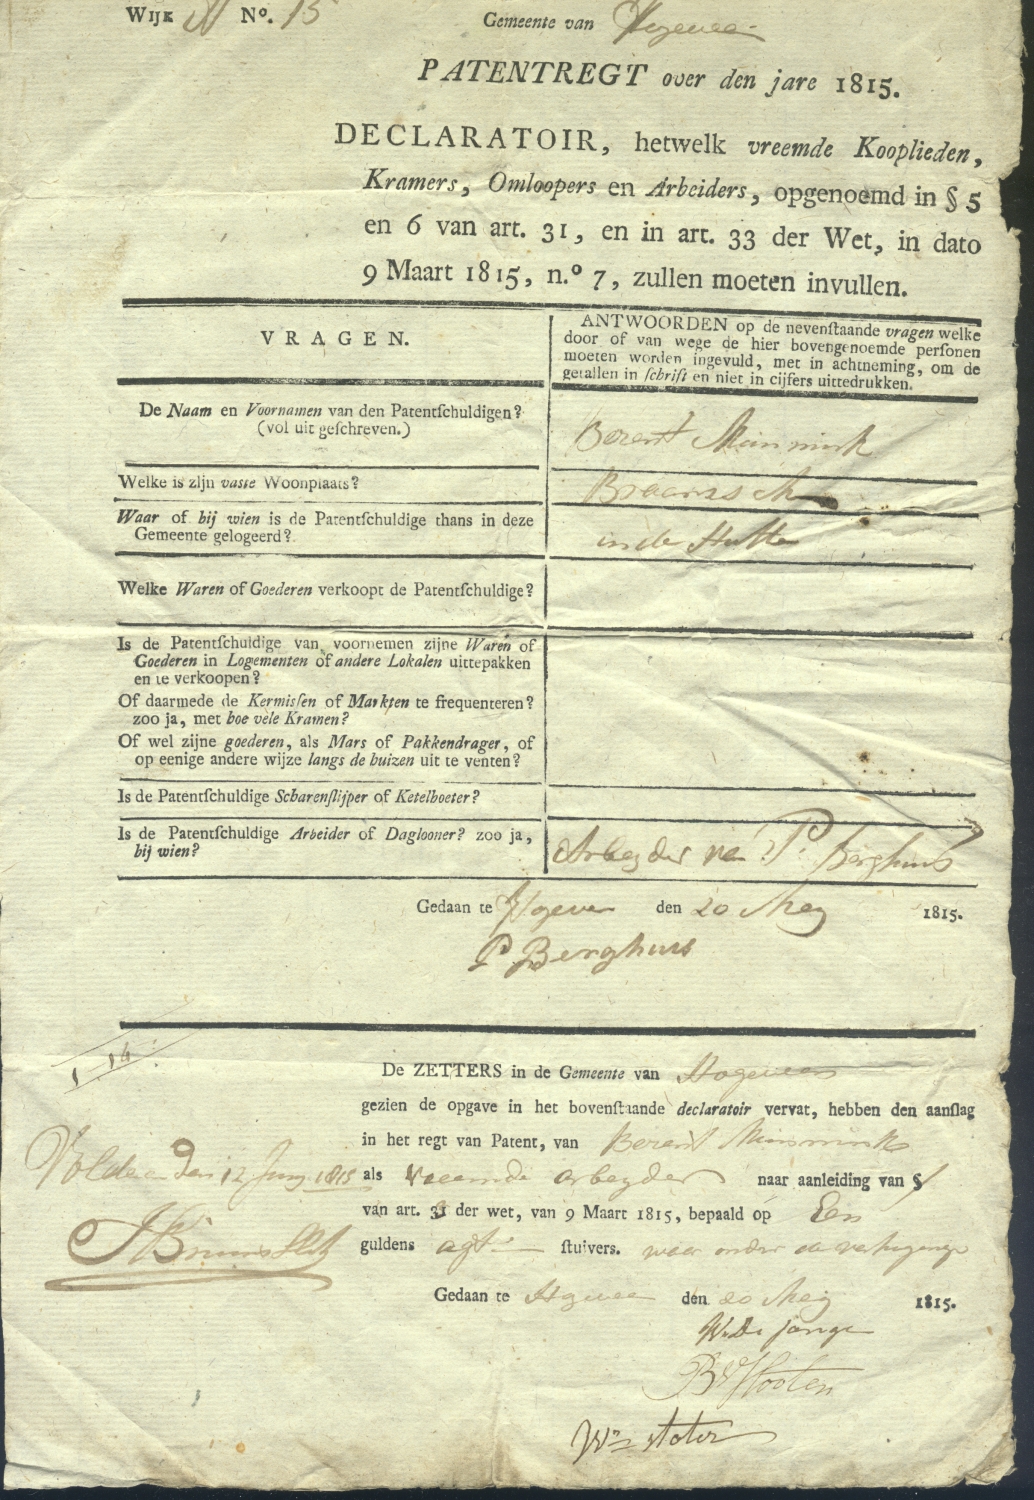 Wijk A No. 15 Gemeente van Hogevee
PATENTREGT over den jare 1815.
DECLARATOIR, hetwelk vreemde Kooplieden,
Kramers, Omloopers en Arbeiders, opgenoemd in § 5
en 6 van art. 31, en in art. 33 der Wet, in dato
9 Maart 1815, n.o 7, zullen moeten invullen.
VRAGEN.
ANTWOORDEN op de nevenſtaande vragen welke
door of van wege de hier bovengenoemde perſonen
moeten worden ingevuld, met in achtneming, om de
getallen in ſchrift en niet in cijfers uittedrukken.
De Naam en Voornamen van den Patentſchuldigen?
(vol uit geſchreven.)
Berent Minmink
Welke is zijn vaste Woonplaats?
Waar of bij wien is de Patentſchuldige thans in deze
Gemeente gelogeerd?
in de Hutte
Welke Waren of Goederen verkoopt de Patentſchuldige?
Is de Patentſchuldige van voornemen zijne Waren of
Goederen in Logementen of andere Lokalen uittepakken
en te verkoopen?
Of daarmede de Kermisſen of Markten te frequenteren?
zoo ja, met hoe vele Kramen?
Of wel zijne goederen, als Mars of Pakkendrager, of
op eenige andere wijze langs de huizen uit te venten?
Is de Patentſchuldige Scharenſlijper of Ketelboeter?
Is de Patentſchuldige Arbeider of Daglooner? zoo ja,
bij wien?
Arbeyder van P. Berghuis
Gedaan te Hogevee den 20 Mey 1815.
P. Berghuis
1-14:
De ZETTERS in de Gemeente van Hogevee
gezien de opgave in het bovenſtaande declaratoir vervat, hebben den aanſlag
in het regt van Patent, van Berent Minmink
als vreemde arbeyder naar aanleiding van §
van art. 31 der wet, van 9 Maart 1815, bepaald op Een
guldens agt ſtuivers. waar onder de verhoginge
Voldaan den 12 Juny 1815
Gedaan te Hogevee den 20 Mey 1815.
W. De Jonge
B V Hooten
Wm Stoter